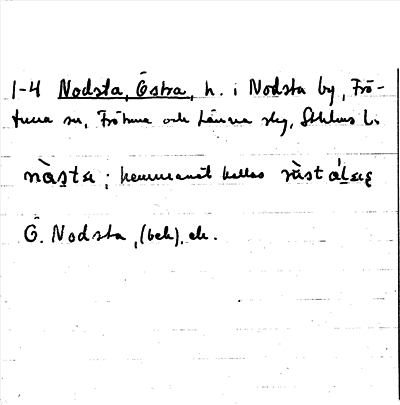 1-4 Nodsta, Östra, h. i Nodsta by, Frö-
tuna sn, Frötuna och Länna slg, Sthlms l.
nàsta; hemmanet kallas
Ö. Nodsta, (beh), ek.